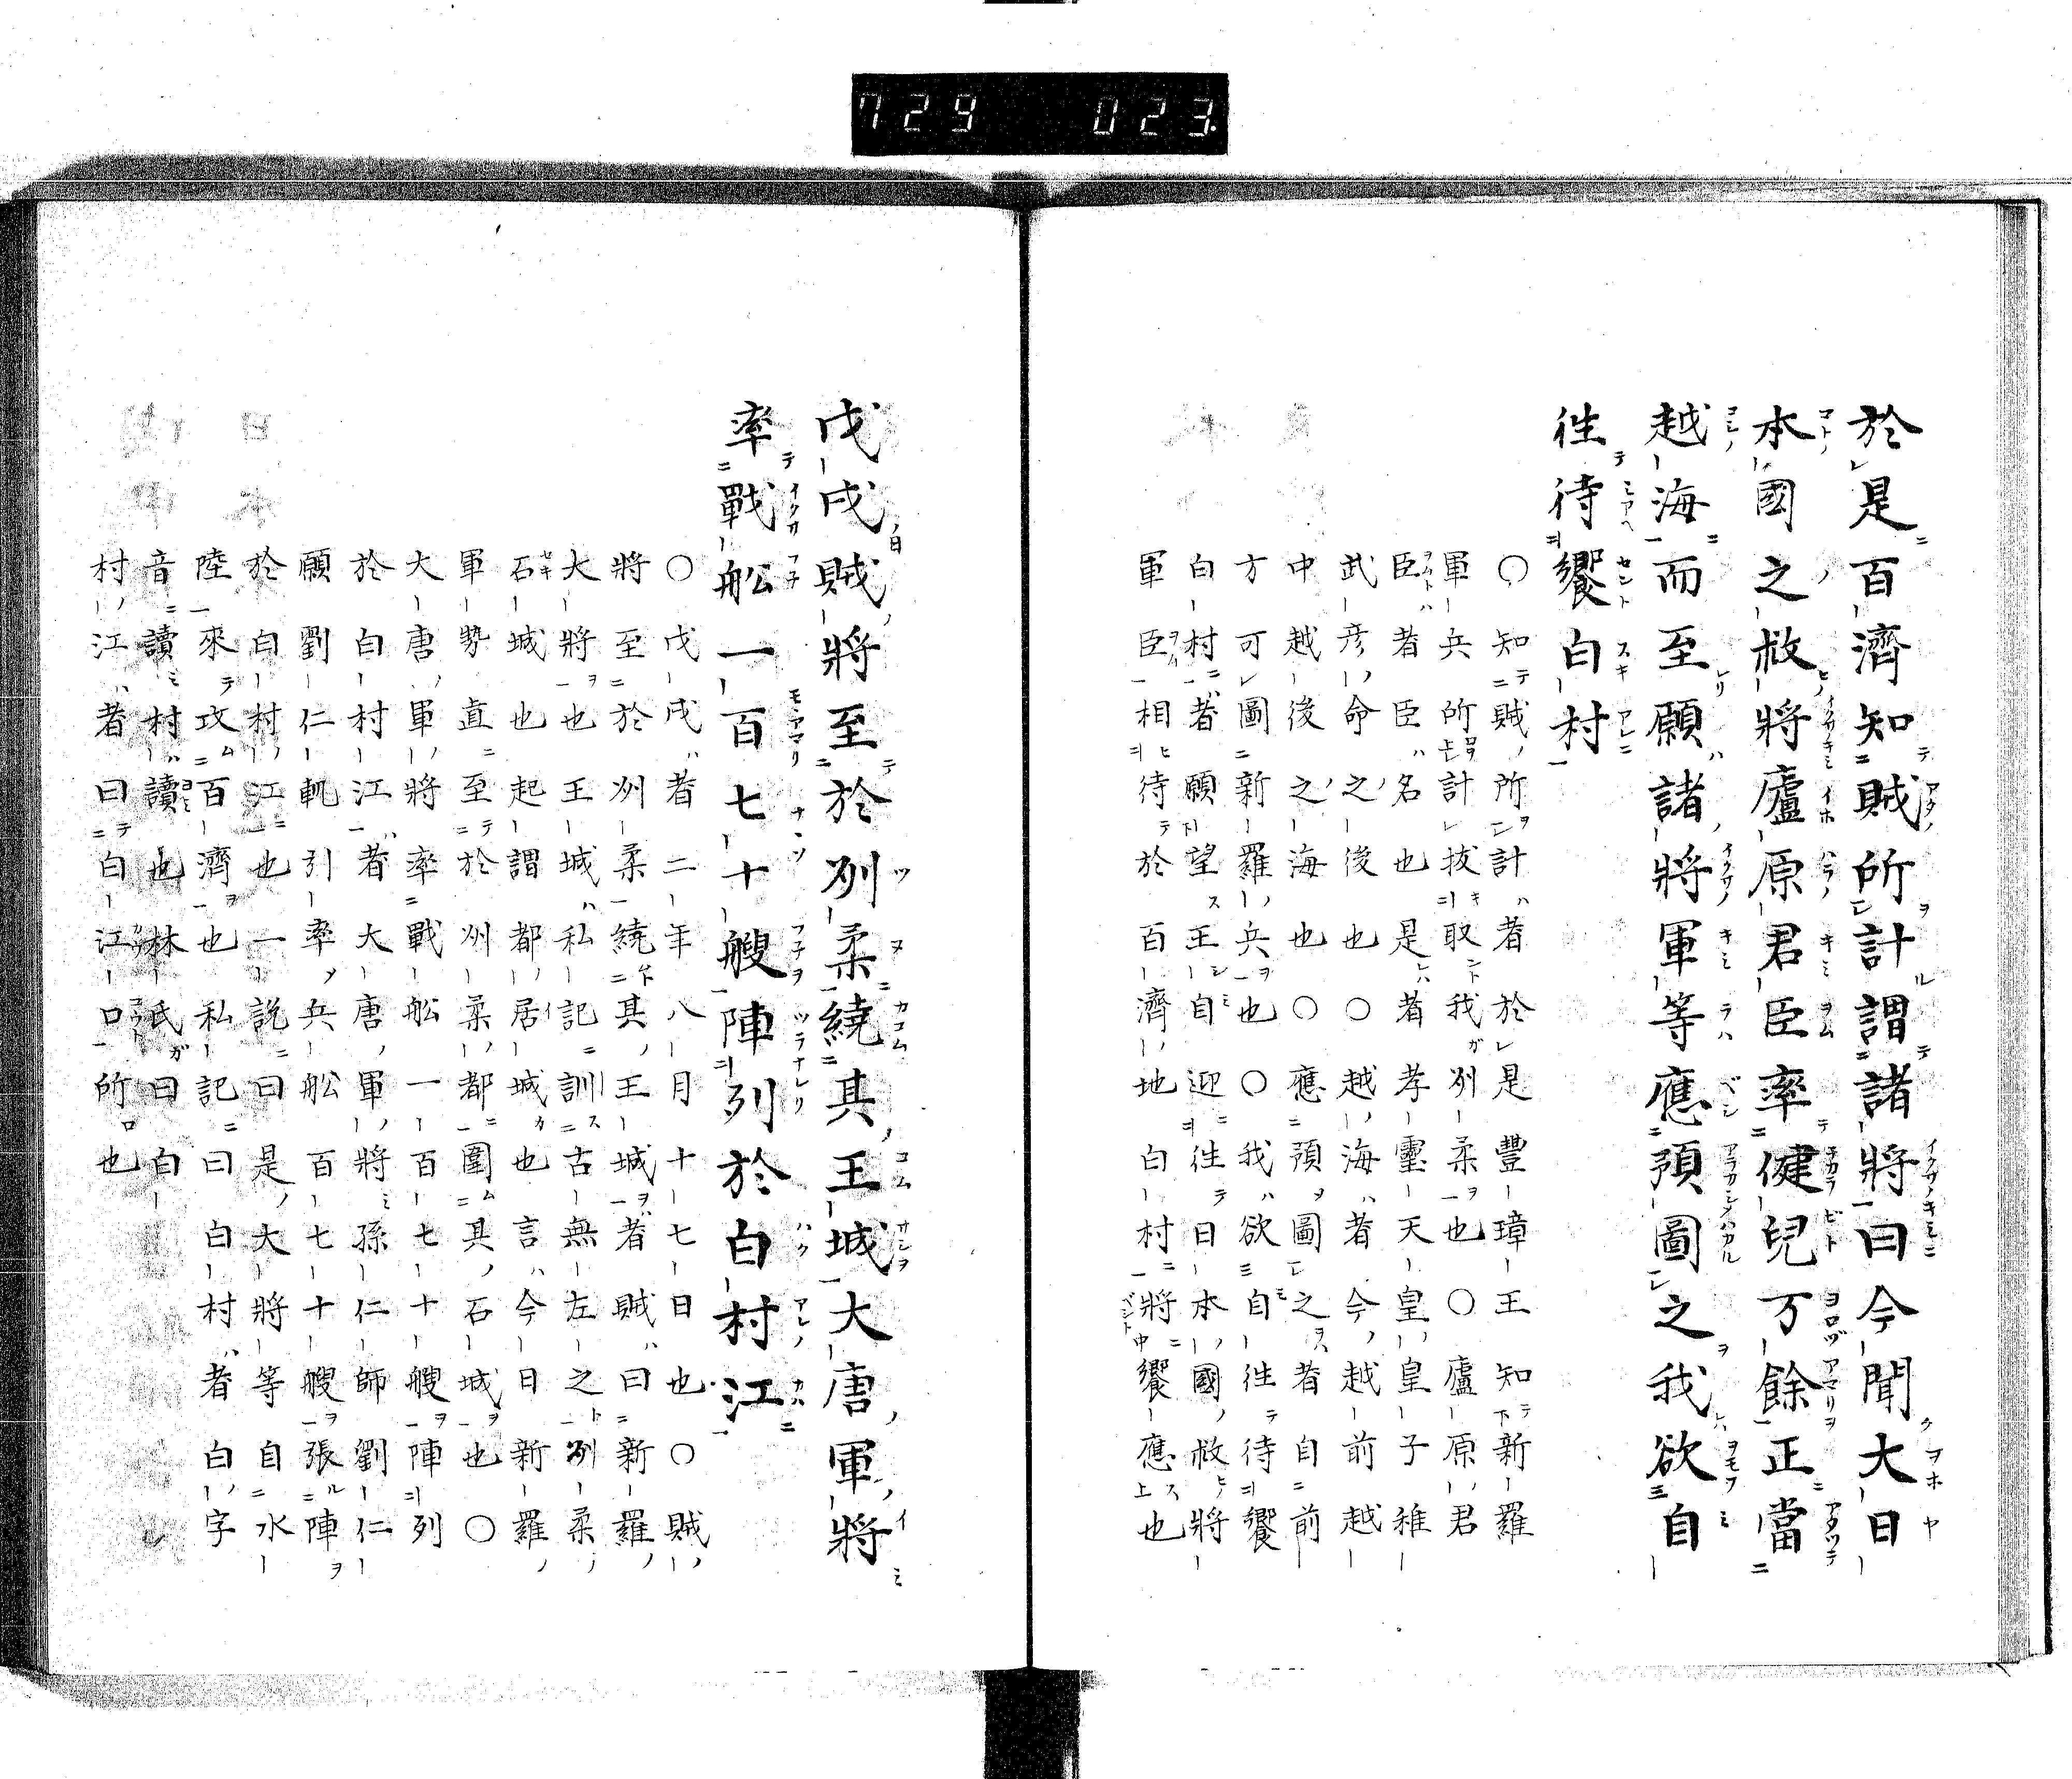 729 023
於是百濟知賊所計謂諸將曰今聞大日
本國之救將廬原君臣率健兒万餘正當
越海而至願諸將軍等應預圖之我欲自
徃待饗白村
○知賊所計者於是豐璋王知新羅
軍兵所計拔取我州柔也○廬原君
臣者臣名也是者孝靈天皇皇子稚
武彦命之後也○越海者今越前越
中越後之海也○應預圖之者自前
方可圖新羅兵也○我欲自徃待饗
白村者願望王自迎徃日本國救將
軍臣相待於百濟地白村將饗應也
戊戌賊將至於州柔繞其王城大唐軍將
率戰舩一百七十艘陣列於白村江
○戊戌者二年八月十七日也○賊
將至於州柔繞其王城者賊曰新羅
大將也王城私記訓古無左之州柔
石城也起謂都居城也言今日新羅
軍勢直至於州柔都圍其石城也○
大唐軍將率戰舩一百七十艘陣列
於白村江者大唐軍將孫仁師劉仁
願劉仁軌引率兵舩百七十艘張陣
於白村江也一説曰是大將等自水
陸來攻百濟也私記曰白村者白字
音讀村讀也林氏曰白
村江者曰白江口所也